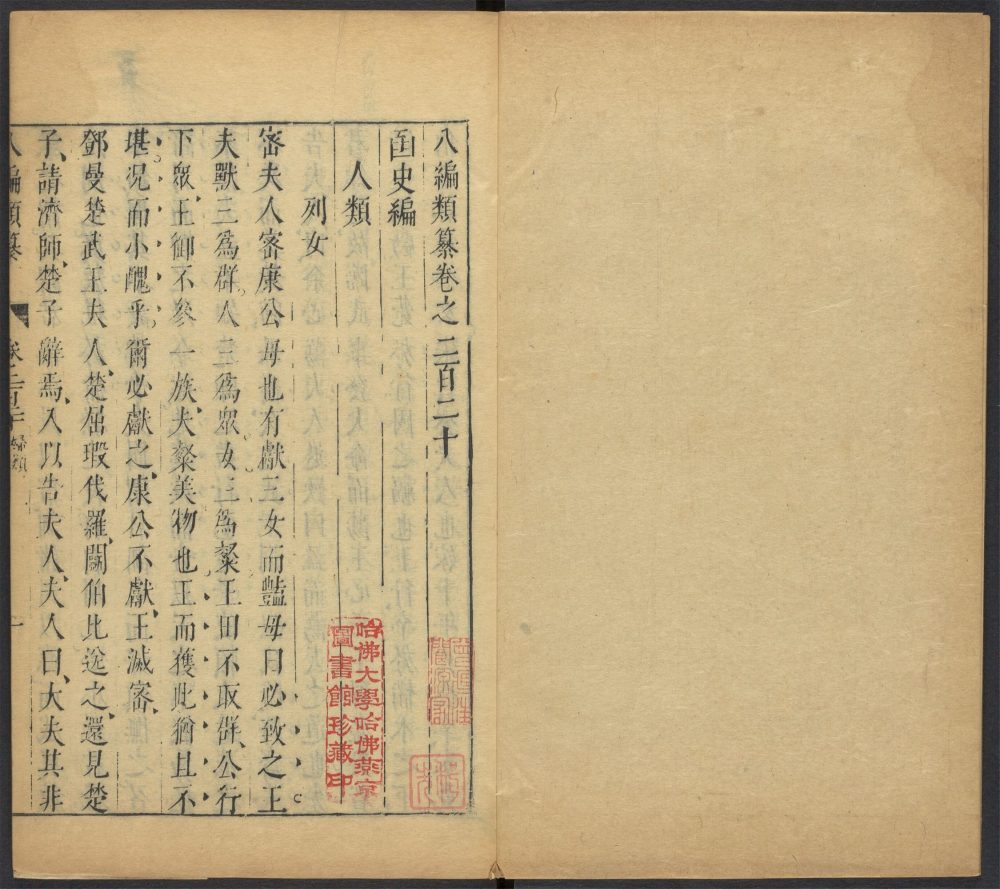 八編類纂卷之二百二十
函史編
人類
列女
密夫人密康公母也有獻三女而豔母曰必致之王
夫獸三爲群人三爲眾女三爲粲王田不取群公行
下眾王御不參一族夫粲美物也王而獲此猶且不
堪況而小醜乎爾必獻之康公不獻王滅密
鄧曼楚武王夫人楚屈瑕伐羅鬬伯比送之還見楚
子請濟師楚子辭焉入以告夫人夫人曰大夫其非
八編類纂
卷之二百二十 婦類
一
哈佛大學哈佛燕京
圖書館珍藏印